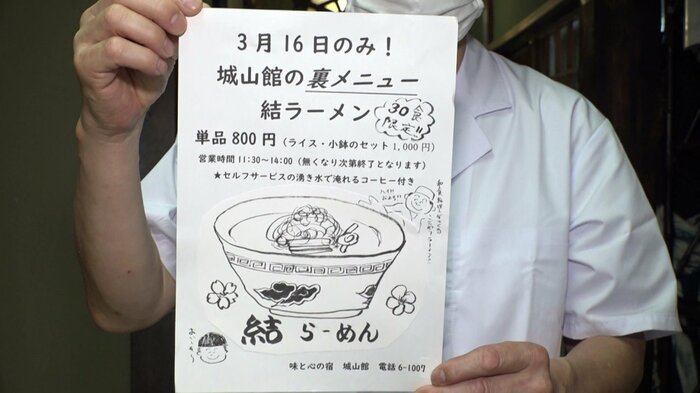 3月16日のみ！
城山館の裏メニュー
結ラーメン
30食
限定!!
単品800円（ライス・小鉢のセット1,000円）
営業時間11:30〜14:00（無くなり次第終了となります）
★セルフサービスの湧き水で淹れるコーヒー付き
結らーめん
味と心の宿　城山館　電話6-1007